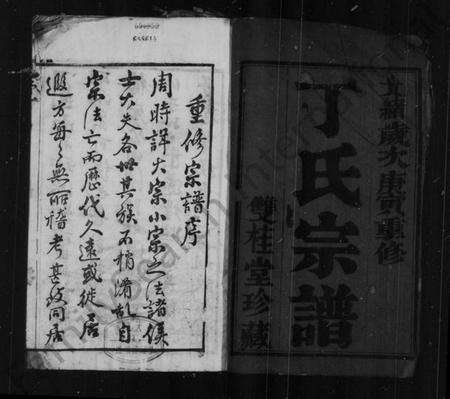 光緒歲次庚寅重修
丁氏宗譜
雙桂堂珍藏
重修宗譜序
周時詳大宗小宗之法諸侯
士大夫各世其族不稍淆亂自
宗法亡而歷代久遠或徙居
遐方每無所稽考甚致同居